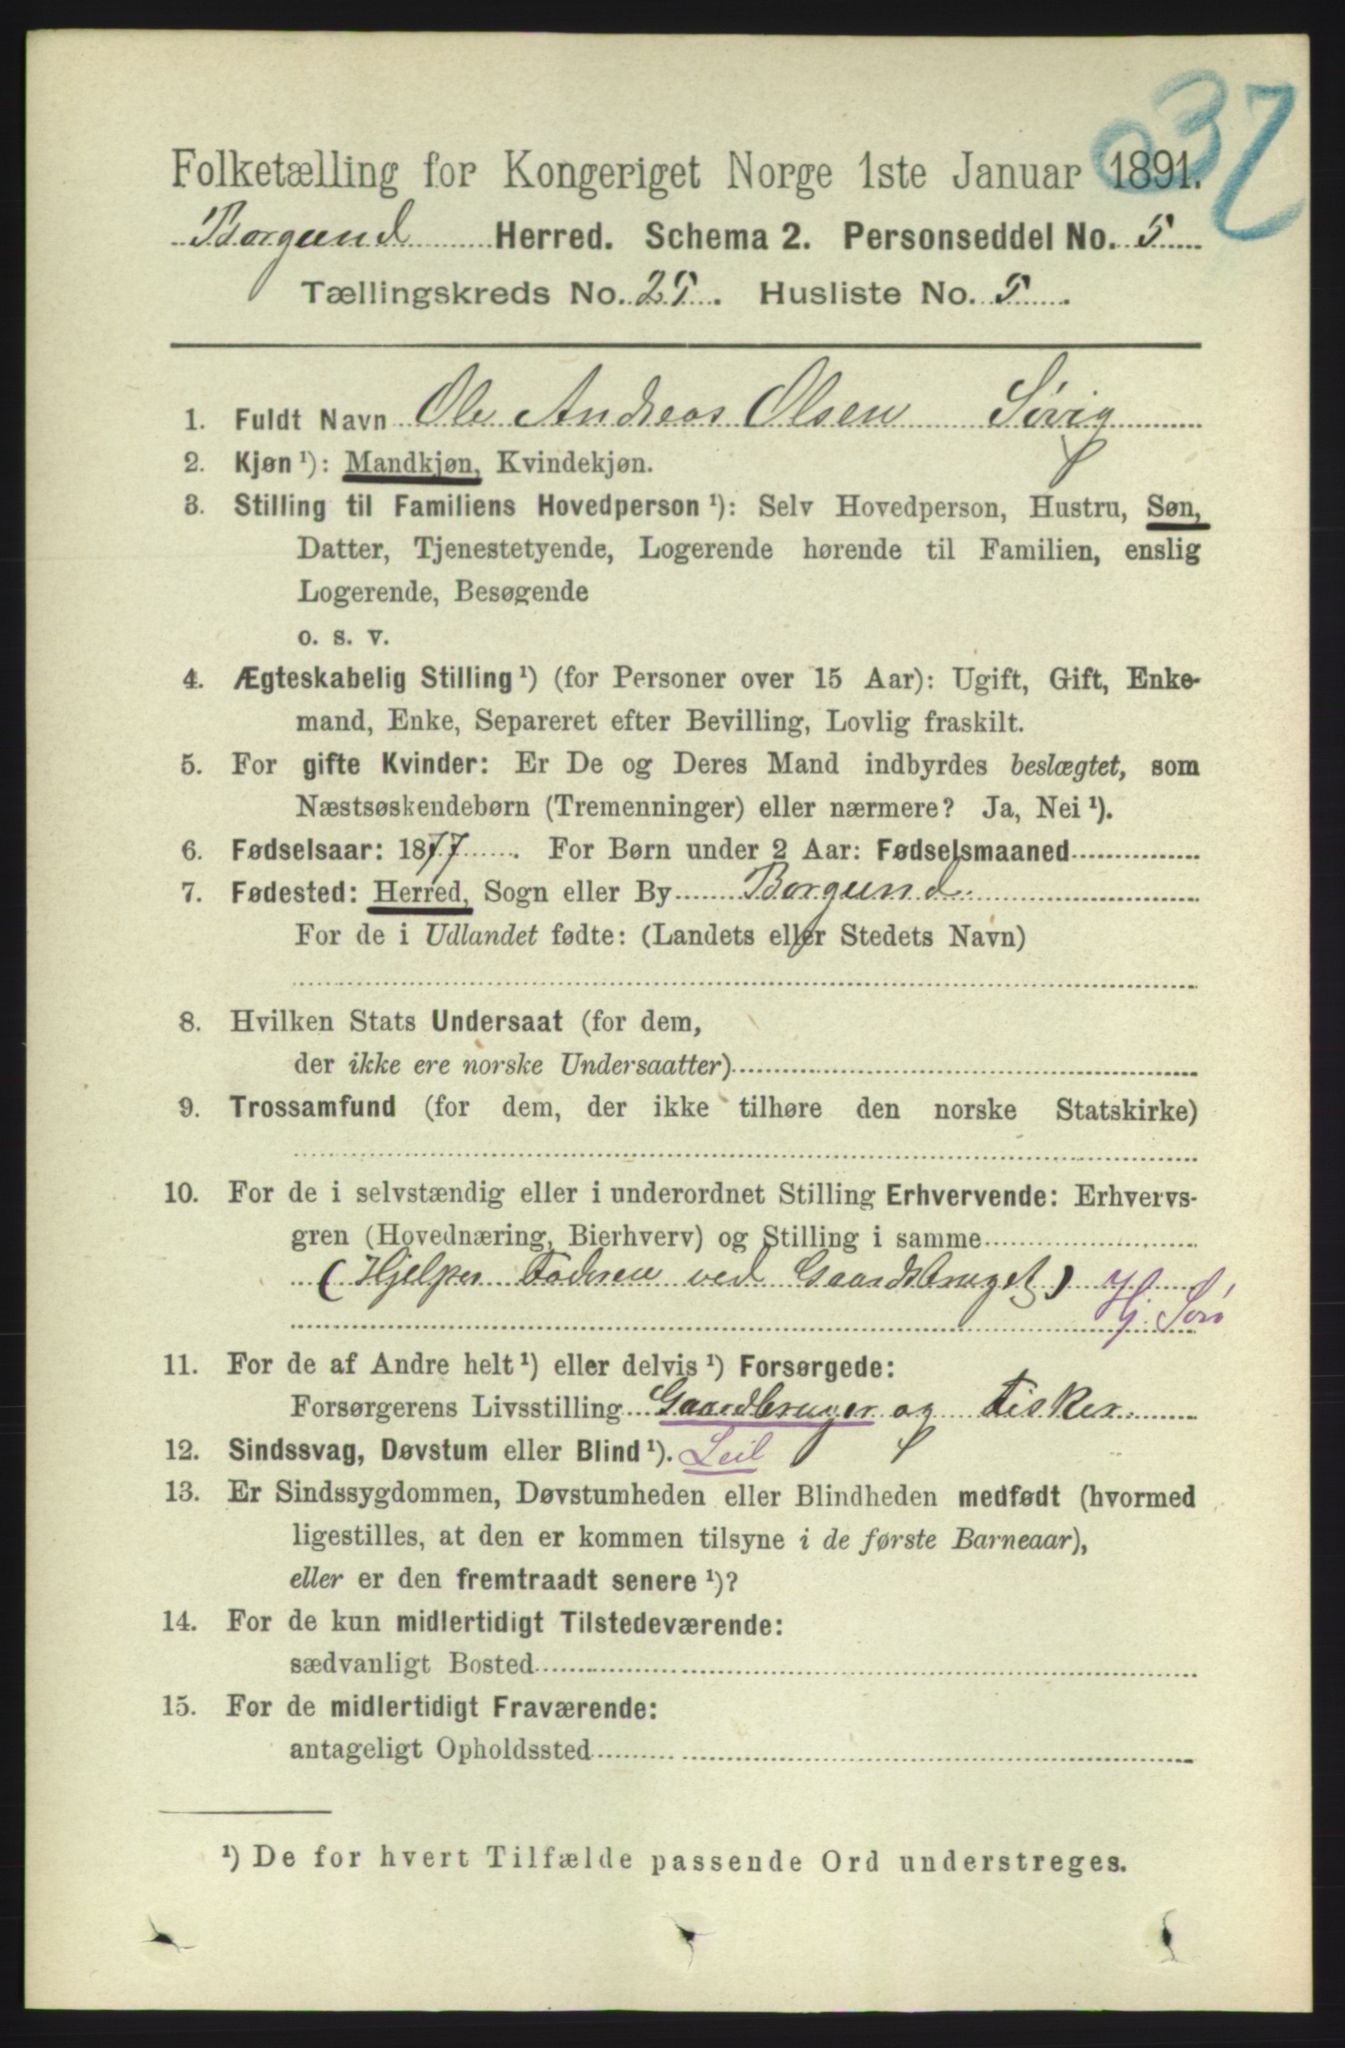 37
Folketælling for Kongeriget Norge 1ste Januar 1891.
Borgund Herred. Schema 2. Personseddel No. 5
Tællingskreds No. 25. Husliste No. 5.
1. Fuldt Navn Ole Andreas Olsen Sørig
2. Kjøn ¹): Mandkjøn, Kvindekjøn.
3. Stilling til Familiens Hovedperson ¹): Selv Hovedperson, Hustru, Søn,
Datter, Tjenestetyende, Logerende hørende til Familien, enslig
Logerende, Besøgende
o. s. v.
4. Ægteskabelig Stilling ¹) (for Personer over 15 Aar): Ugift, Gift, Enke-
mand, Enke, Separeret efter Bevilling, Lovlig fraskilt.
5. For gifte Kvinder: Er De og Deres Mand indbyrdes beslægtet, som
Næstsøskendebørn (Tremenninger) eller nærmere? Ja, Nei ¹).
6. Fødselsaar: 1877. For Børn under 2 Aar: Fødselsmaaned
7. Fødested: Herred, Sogn eller By Borgund
For de i Udlandet fødte: (Landets eller Stedets Navn)
8. Hvilken Stats Undersaat (for dem,
der ikke ere norske Undersaatter)
9. Trossamfund (for dem, der ikke tilhøre den norske Statskirke)
10. For de i selvstændig eller i underordnet Stilling Erhvervende: Erhvervs-
gren (Hovednæring, Bierhverv) og Stilling i samme
(Hjelper Faderen ved Gaardsbruget)
Hj. Søn
11. For de af Andre helt ¹) eller delvis ¹) Forsørgede:
Forsørgerens Livsstilling Gaardbruger og Fisker.
12. Sindssvag, Døvstum eller Blind ¹). Leil
13. Er Sindssygdommen, Døvstumheden eller Blindheden medfødt (hvormed
ligestilles, at den er kommen tilsyne i de første Barneaar),
eller er den fremtraadt senere ¹)?
14. For de kun midlertidigt Tilstedeværende:
sædvanligt Bosted
15. For de midlertidigt Fraværende:
antageligt Opholdssted
¹) De for hvert Tilfælde passende Ord understreges.